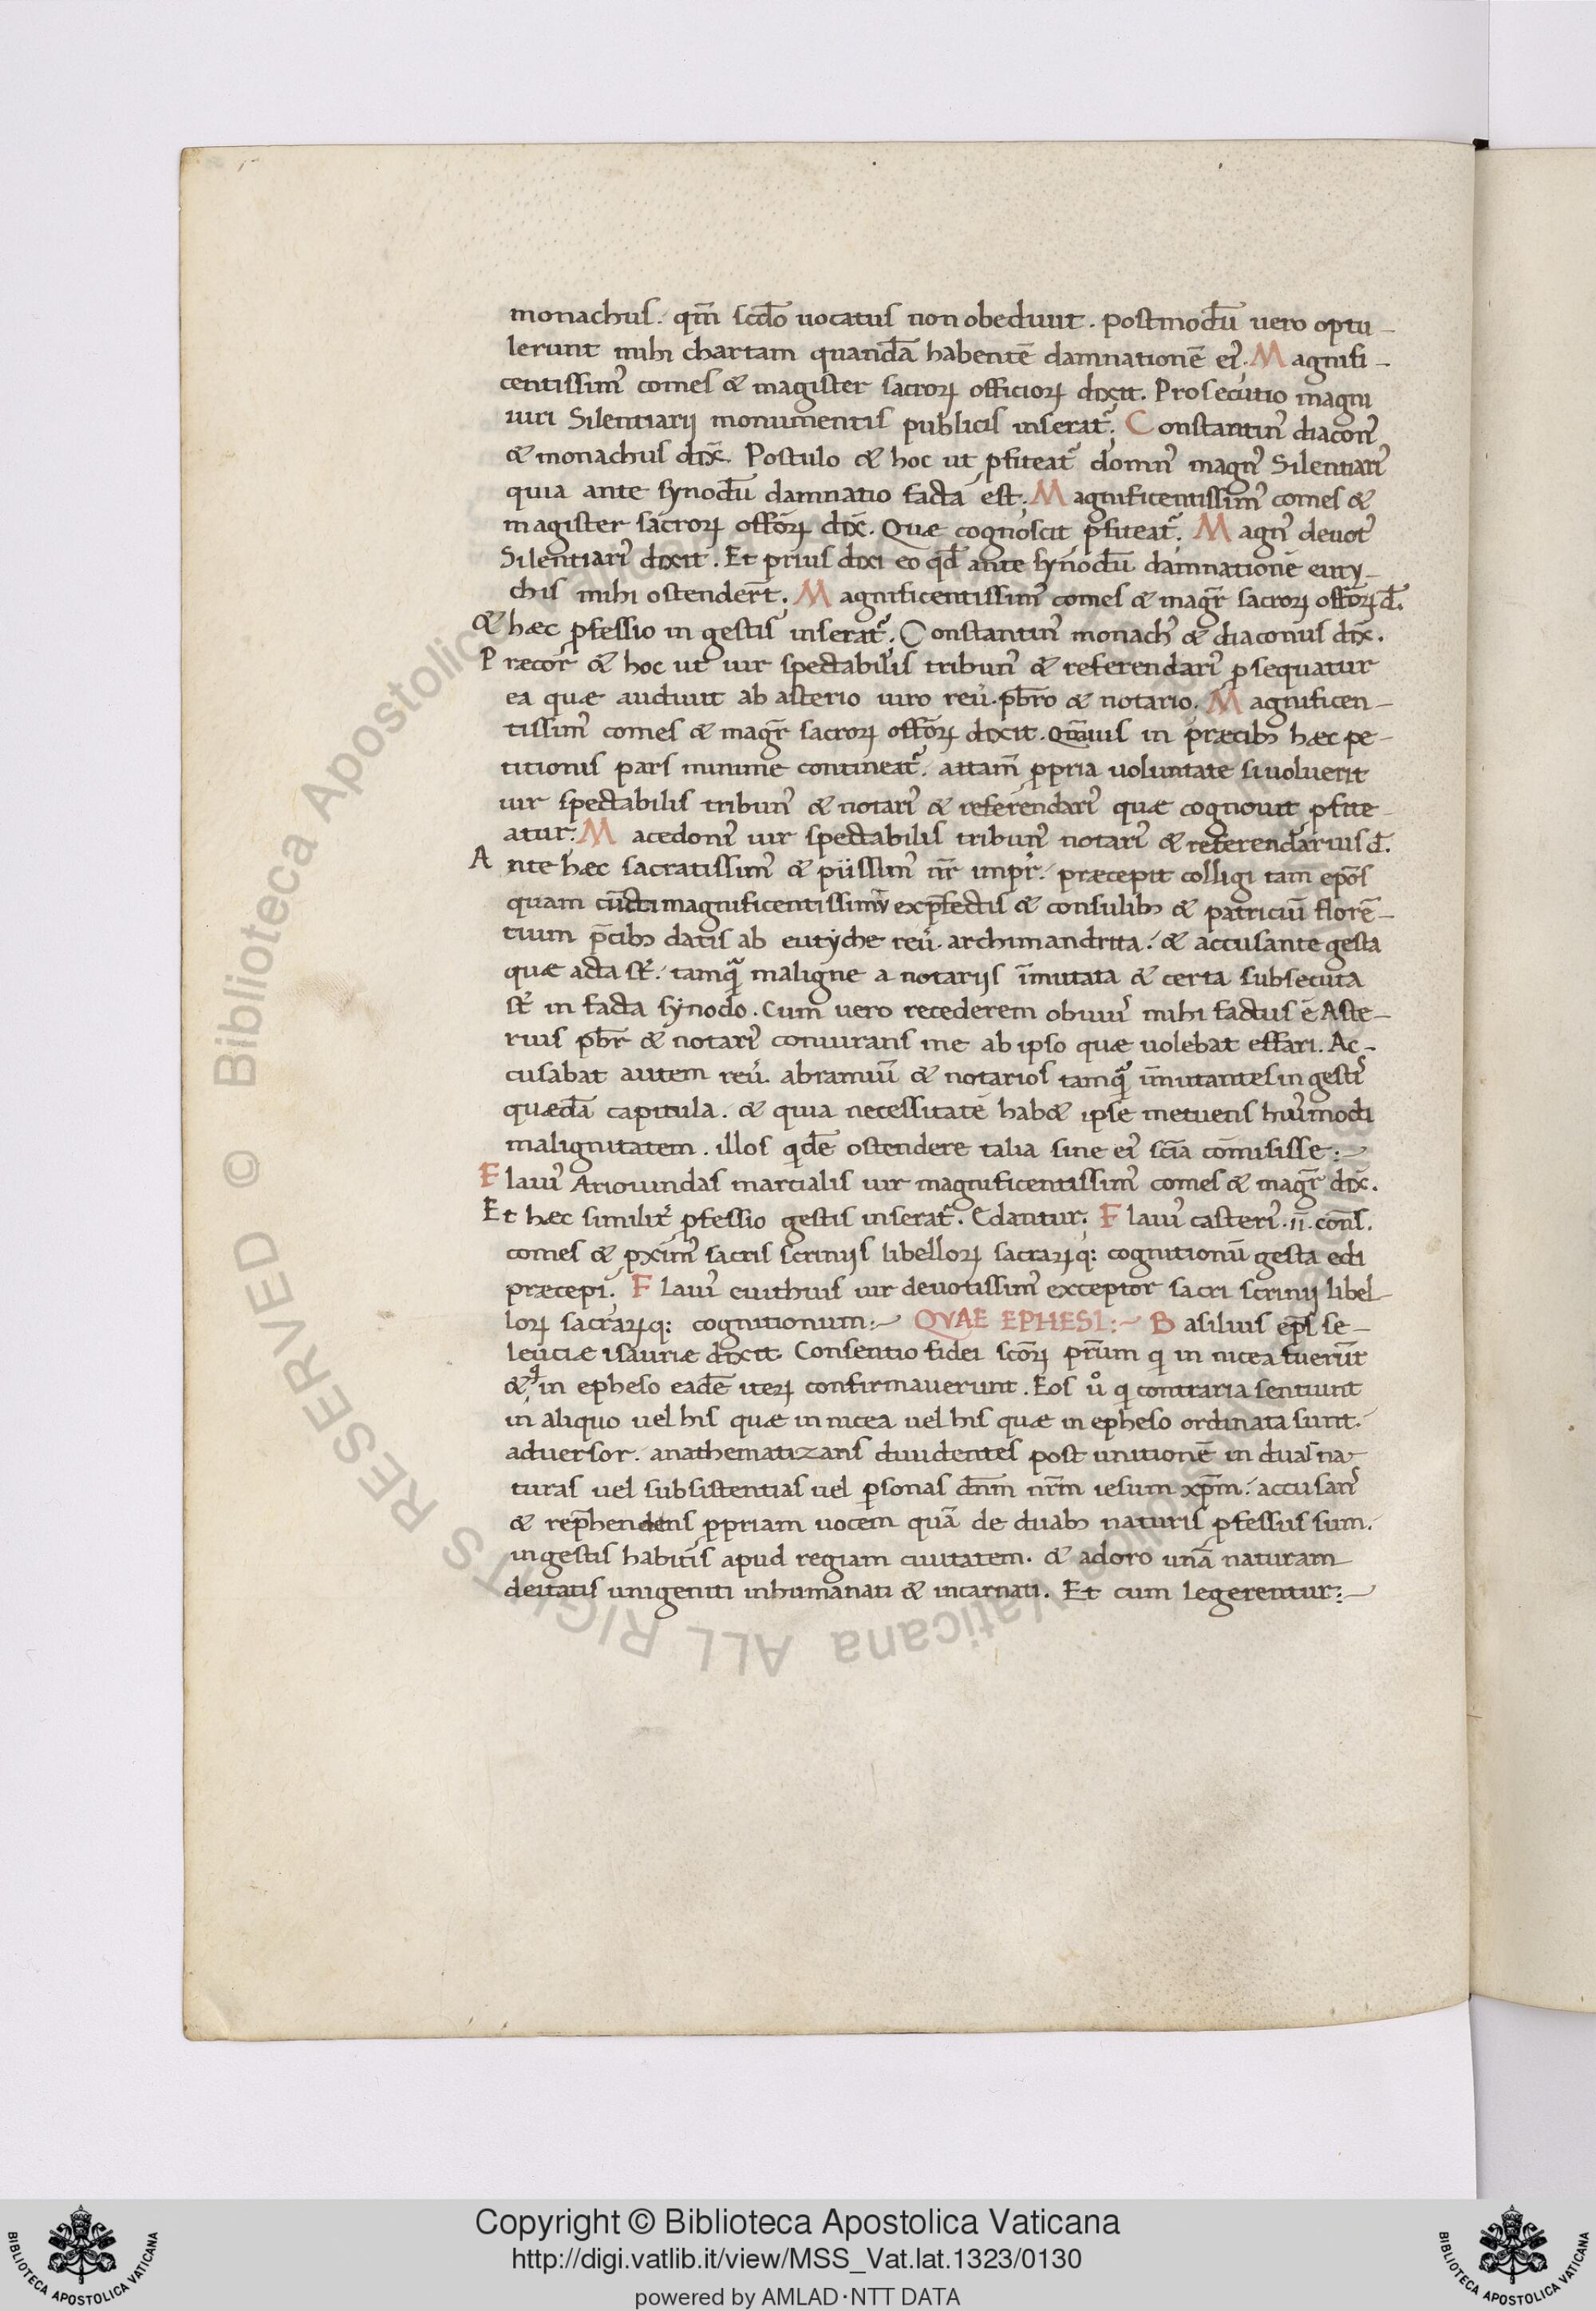 monachus. qm̄ scd̄o uocatus non obediuit. postmodū uero optu-
lerunt mihi chartam quandā habentē damnationē eiꝰ. Magnifi-
centissimꝰ comes & magister sacroꝝ officioꝝ dixit. Prosecutio magni
uiri Silentiarij monumentis publicis inseratᷣ. Constantinꝰ diaconꝰ
& monachus dix̄. Postulo & hoc ut ꝓfiteatᷣ domnꝰ magnꝰ Silentiariꝰ
quia ante synodū damnatio facta est. Magnificentissimꝰ comes &
magister sacroꝝ offōꝝ dix̄. Quæ cognoscit ꝓfiteatᷣ. Magnꝰ deuotꝰ
Silentiariꝰ dixit. Et prius dixi eo qd̄ ante synodū damnationē euty-
chis mihi ostender̄t. Magnificentissimꝰ comes & magr̄ sacroꝝ offōꝝ d̄.
& hæc ꝓfessio in gestis inseratᷣ. Constantinꝰ monachꝰ & diaconus dix̄.
Præcor̄ & hoc ut uir spectabilis tribunꝰ & referendariꝰ ꝓsequatur
ea quæ audiuit ab asterio uiro reū. pb̄ro & notario. Magnificen-
tissimꝰ comes & magr̄ sacroꝝ offōꝝ dixit. Quāuis in præcibꝫ hæc pe-
titionis pars minime contineatᷣ. attam̄ ꝓpria uoluntate si uoluerit
uir spectabilis tribunꝰ & notariꝰ & referendariꝰ quæ cognouit ꝓfite-
atur. Macedoniꝰ uir spectabilis tribunꝰ notariꝰ & referendarius d̄.
Ante hæc sacratissimꝰ & piissimꝰ nr̄ impr̄. præcepit colligi tam ep̄os
quam cūcti magnificentissimi exp̄fectis & consulibꝫ & patriciū florē-
tium p̄cibꝫ datis ab eutyche reū. archimandrita. & accusante gesta
quæ acta st̄. tamquā maligne a notarijs īmutata & certa subsecuta
st̄ in facta synodo. Cum uero recederem obuiꝰ mihi factus ē Aste-
rius pb̄r & notariꝰ coniurans me ab ipso quæ uolebat effari. Ac-
cusabat autem reū. abramiū & notarios tamquā īmutantes in gestꝭ
quædā capitula. & quia necessitatē hab& ipse metuens huiꝰmodi
malignitatem. illos qidē ostendere talia sine eiꝰ scīa cōmisisse:~
Flauiꝰ Ariouindas martialis uir magnificentissimꝰ comes & magr̄ dix̄.
Et hæc similitᷣ ꝓfessio gestis inseratᷣ. Edantur. Flauiꝰ casteriꝰ. ıı. cons̄.
comes & ꝓximꝰ sacris scrinijs libelloꝝ sacraꝝq: cognitionū gesta edi
præcepi. Flauiꝰ euithius uir deuotissimꝰ exceptor sacri scrinij libel-
loꝝ sacraꝝq: cognitionum:~ QVAE EPHESI:~ Basilius ep̄s se-
leuciæ isauriæ dixit. Consentio fidei scōꝝ pr̄um qi in nicea fuerūt
& qi in epheso eadē iteꝝ confirmauerunt. Eos ůo qi contraria sentiunt
in aliquo uel his quæ in nicea uel his quæ in epheso ordinata sunt.
aduersor. anathematizans diuidentes post unitionē in duas na-
turas uel subsistentias uel ꝑsonas dn̄m nr̄m iesum xp̄m. accusanꝰ
& rep̄hendens ꝓpriam uocem quā de duabꝫ naturis ꝓfessus sum.
in gestis habitis apud regiam ciuitatem. & adoro unā naturam
deitatis unigeniti inhumanati & incarnati. Et cum legerentur:~
Copyright © Biblioteca Apostolica Vaticana
http://digi.vatlib.it/view/MSS_Vat.lat.1323/0130
powered by AMLAD·NTT DATA
BIBLIOTECA APOSTOLICA VATICANA
BIBLIOTECA APOSTOLICA VATICANA